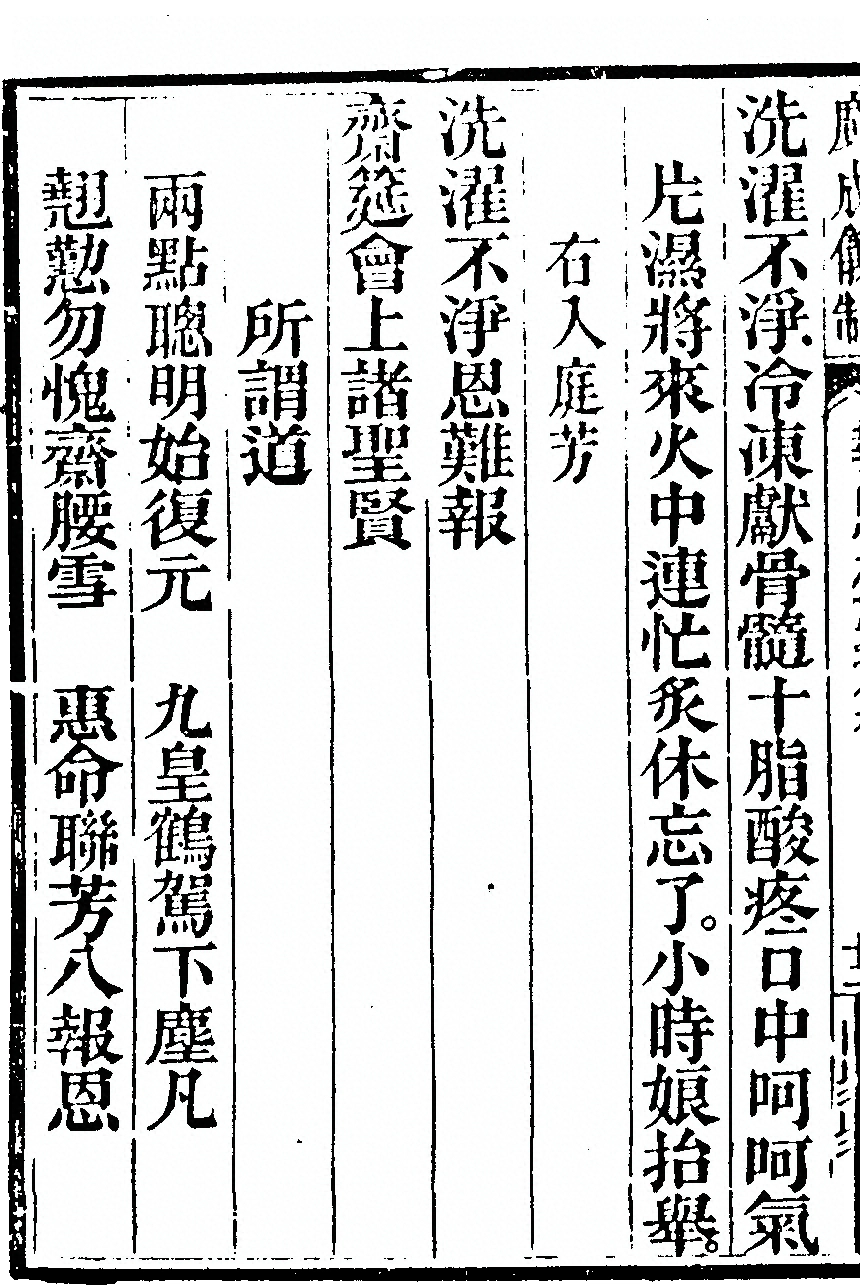 廣成儀制
洗濯不淨冷凍獻骨髓十脂酸疼言口中呵呵氣
片濕將來火中連忙炙休忘了。小時娘抬舉。
右入庭芳
洗濯不淨恩難報
齋筵會上諸聖賢
所謂道
兩點聰明始復元　九皇鶴駕下塵凡
翹懃勿愧齋腰雪　惠命聯芳入報恩